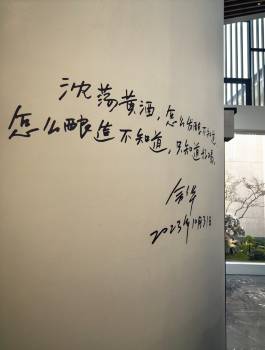 沈荡黄酒，怎么发酵不知道
怎么酿造不知道，只知道好喝。
余华
2023年10月31日